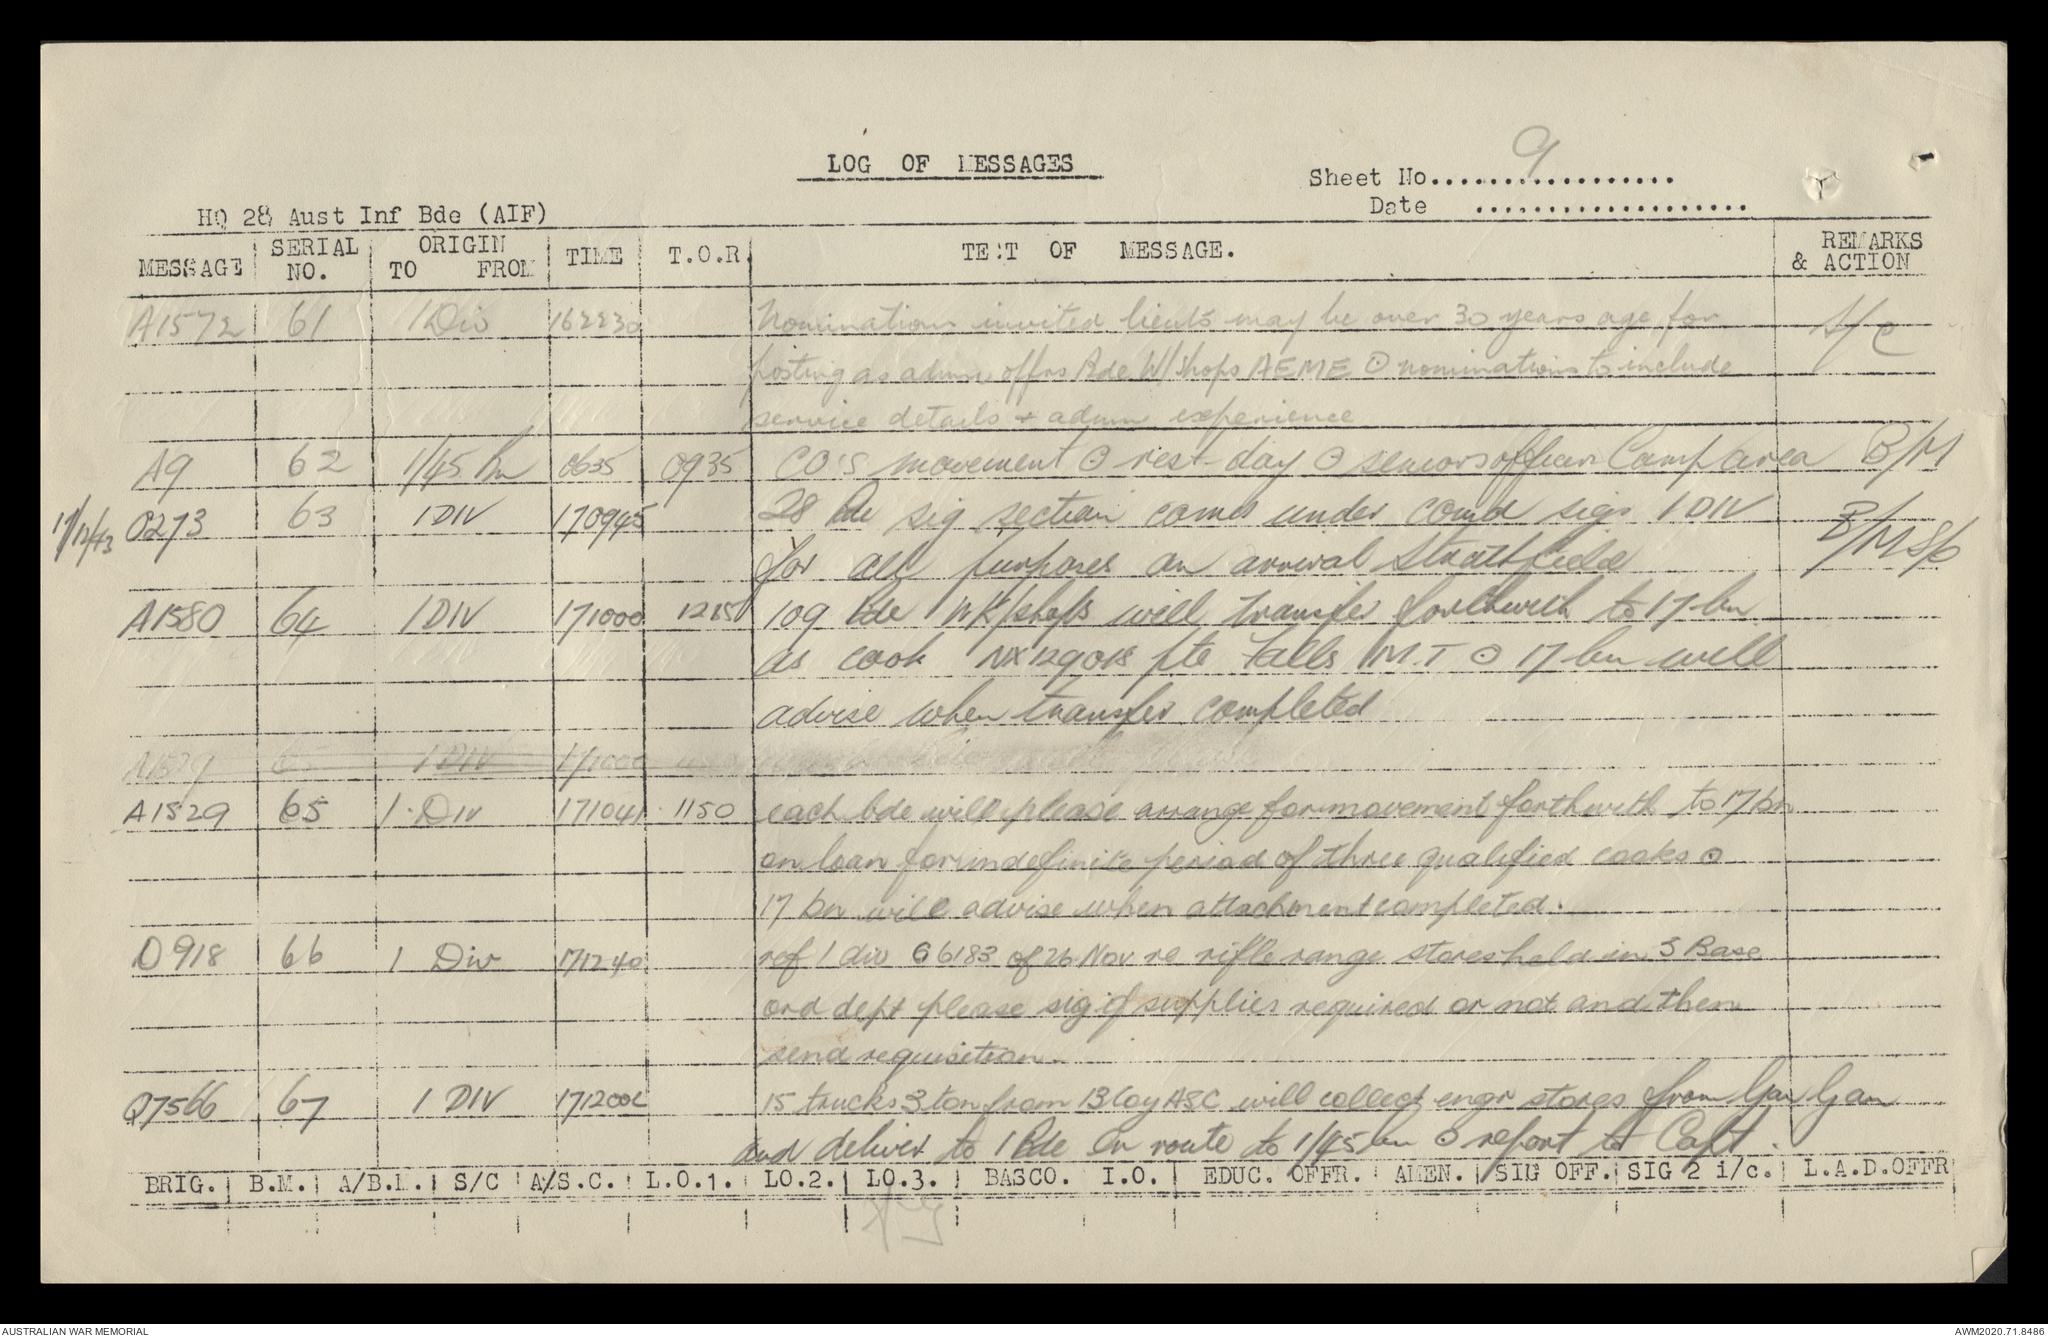 LOG OF MESSAGES
Sheet No.................. 9
Date ...................
HQ 28 Aust Inf Bde (AIF)
MESSAGE SERIAL NO. ORIGIN TO FROM TIME T.O.R. TEXT OF MESSAGE. REMARKS & ACTION
A1572 61 1 Div 162230 Nominations invited lieuts may be over 30 years age for S/C
posting as admin offrs Bde W/Shops AEME ⊙ nominations to include
service details + admin experience
A9 62 1/45 Bn 0635 0935 CO'S movement ⊙ rest day ⊙ seniors officer Camp area B/M
17/12/43 0273 63 1 DIV 170945 28 Bde sig section comes under comd sigs 1 DIV B/M S/C
for all purposes on arrival Strathfield
A1580 64 1 DIV 171000 1215 109 Bde WK/shops will transfer forthwith to 17 bn
as cook NX129018 pte Falls M.T ⊙ 17 bn will
advise when transfer completed
A1529 65 1 DIV 171000
A1529 65 1 Div 171041 1150 each bde will please arrange for movement forthwith to 17 bn
on loan for indefinite period of three qualified cooks ⊙
17 bn will advise when attachment completed.
D918 66 1 Div 171240 ref 1 div G6183 of 26 Nov re rifle range stores held in 3 Base
ord dept please sig if supplies required or not and then
send requisition.
Q7566 67 1 DIV 171200 15 trucks 3 ton from 13 Coy ASC will collect engr stores from Gan Gan
and deliver to 1 Bde en route to 1/45 bn ⊙ report to Capt.
BRIG. B.M. A/B.M. S/C A/S.C. L.O.1. LO.2. LO.3. BASCO. I.O. EDUC. OFFR. AMEN. SIG OFF. SIG 2 i/c. L.A.D.OFFR
AUSTRALIAN WAR MEMORIAL
AWM2020.71.8486